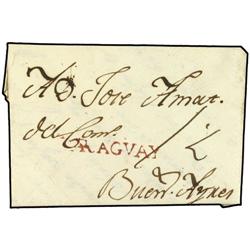 A D. Jose Amat.
del Com.
RAGVAY
Buen.s Ayres